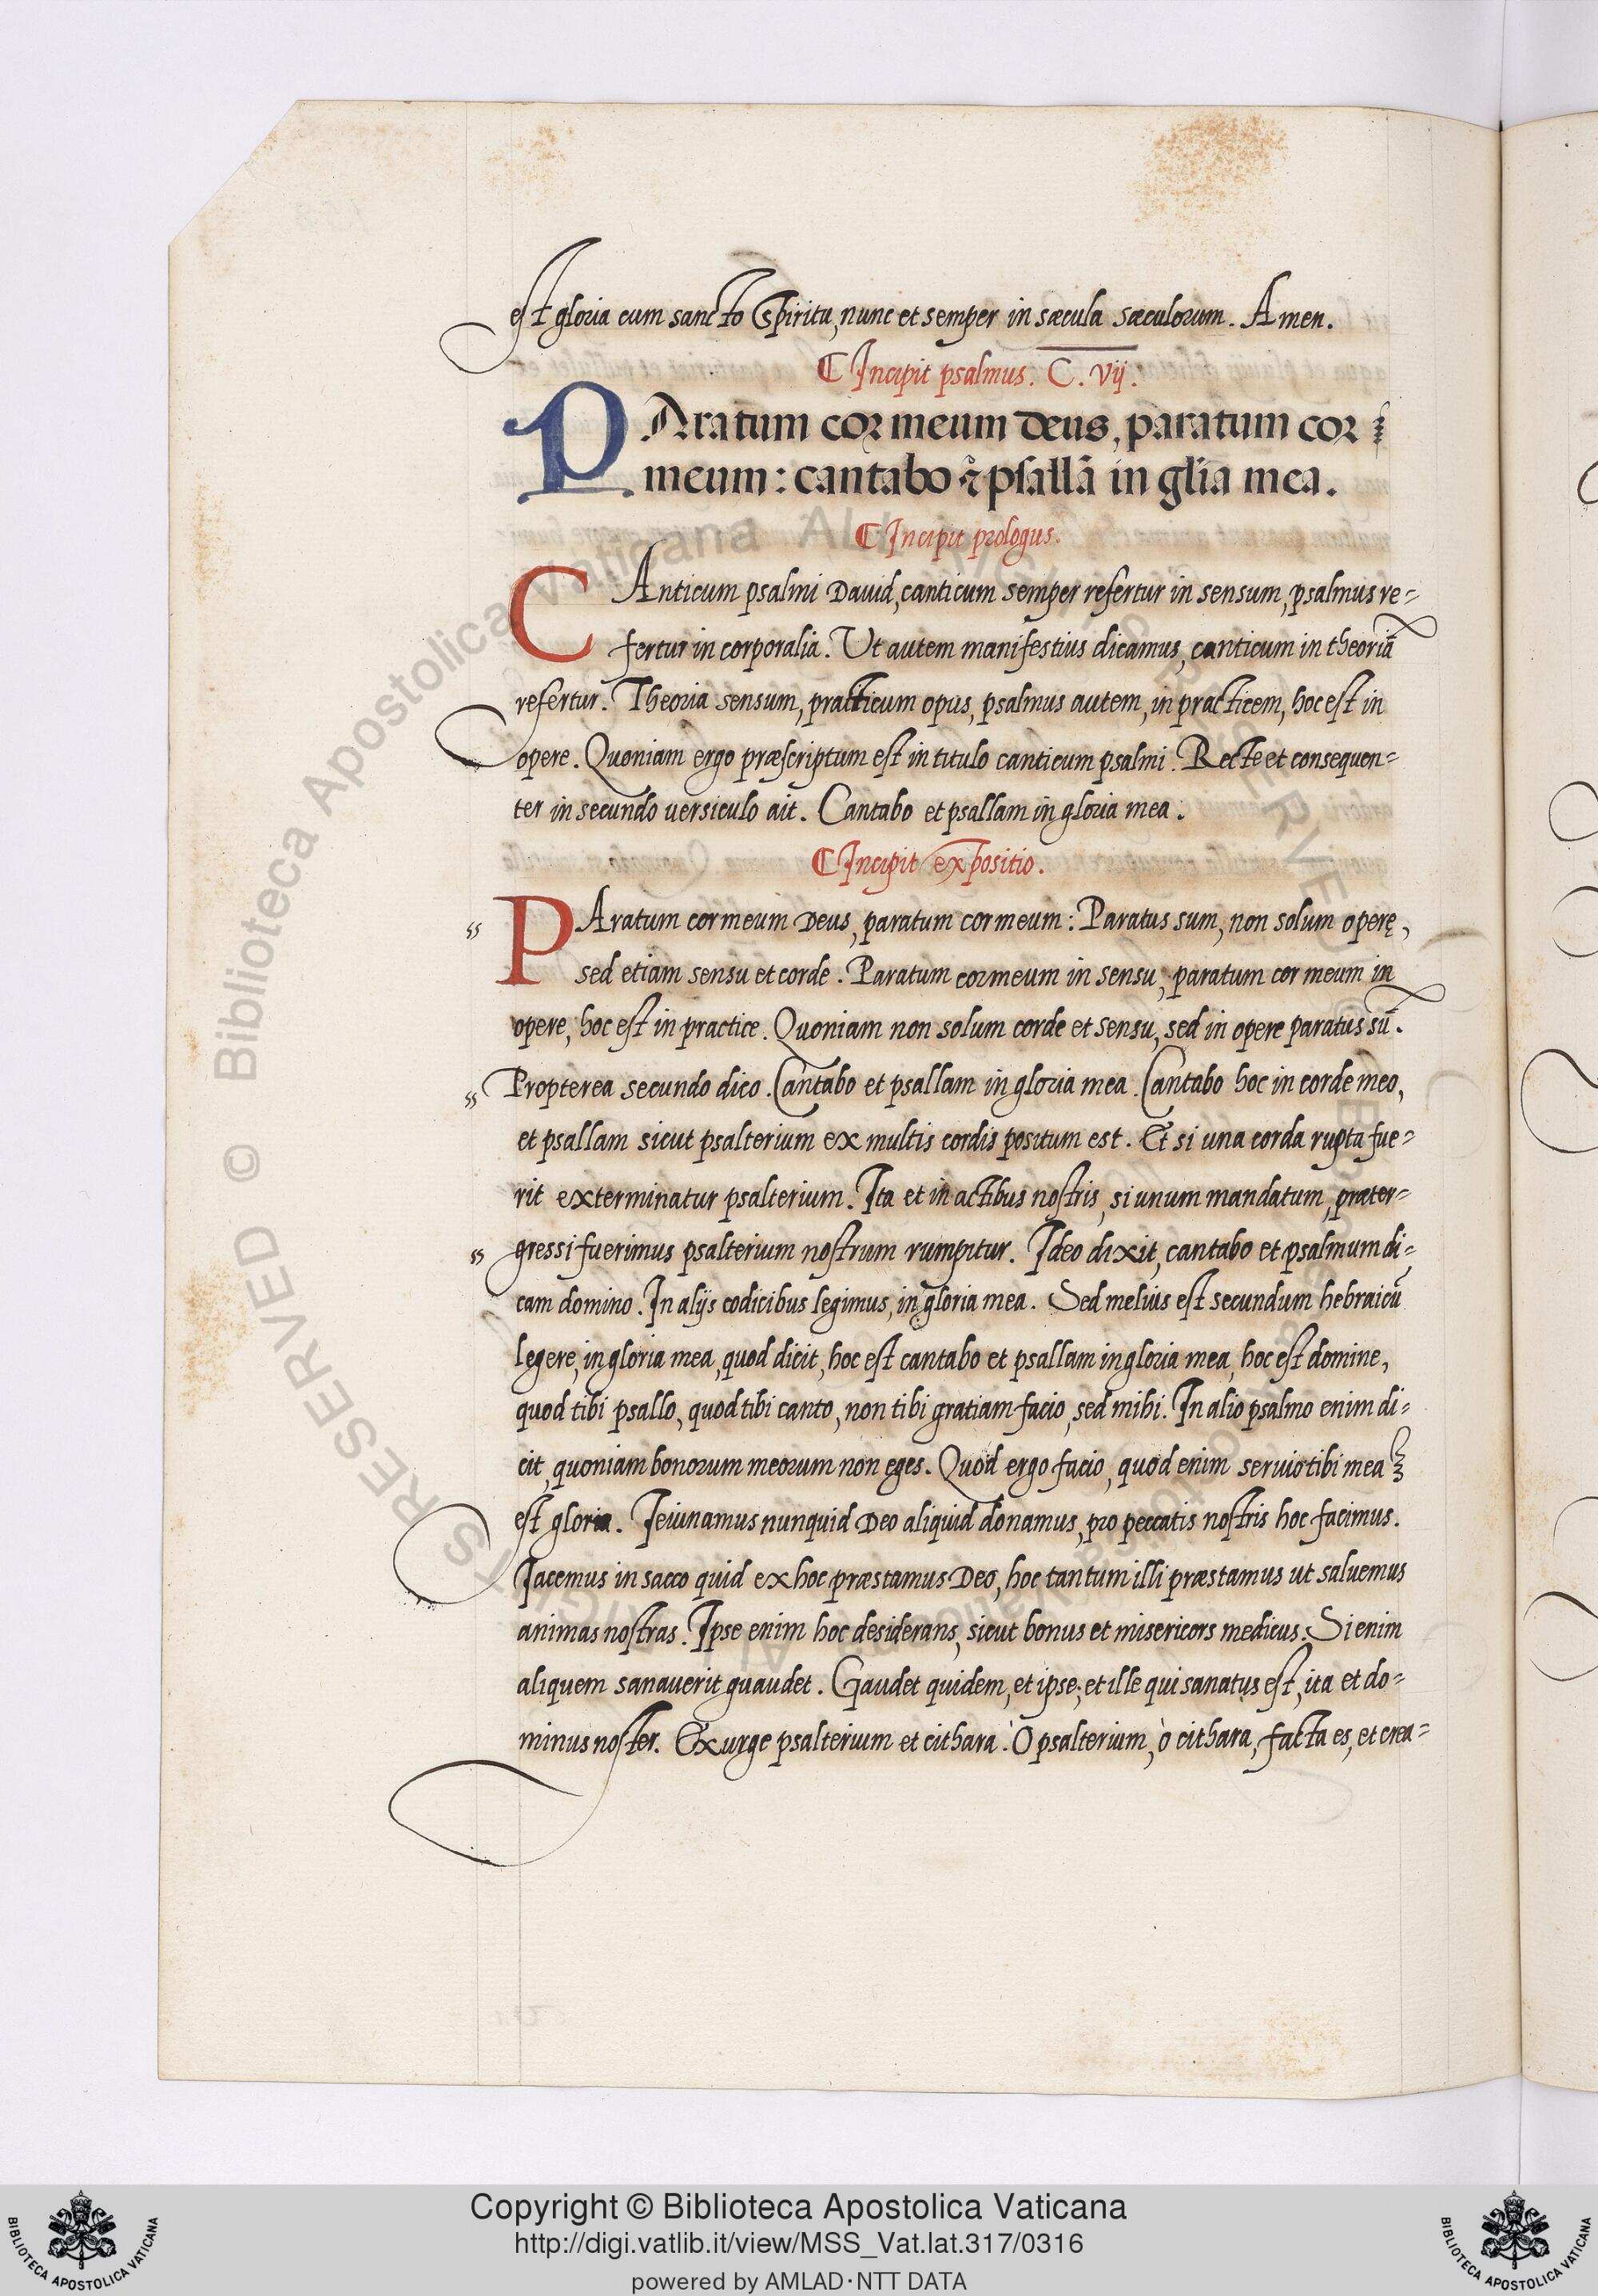 est gloria cum sancto Spiritu, nunc et semper in sæcula sæculorum. Amen.
Incipit psalmus. C. vij.
PAratum cor meum Deus, paratum cor
meum: cantabo ⁊ psallā in glīa mea.
Incipit prologus.
CAnticum psalmi David, canticum semper refertur in sensum, psalmus re=
fertur in corporalia. Ut autem manifestius dicamus, canticum in theoriā
refertur. Theoria sensum, practicum opus, psalmus autem, in practicem, hoc est in
opere. Quoniam ergo præscriptum est in titulo canticum psalmi. Recte et consequen=
ter in secundo versiculo ait. Cantabo et psallam in gloria mea.
Incipit expositio.
PAratum cor meum Deus, paratum cor meum: Paratus sum, non solum operę,
sed etiam sensu et corde. Paratum cor meum in sensu, paratum cor meum in
opere, hoc est in practice. Quoniam non solum corde et sensu, sed in opere paratus sū.
Propterea secundo dico. Cantabo et psallam in gloria mea. Cantabo hoc in corde meo,
et psallam sicut psalterium ex multis cordis positum est. Et si una corda rupta fue=
rit exterminatur psalterium. Ita et in actibus nostris, si unum mandatum, præter=
gressi fuerimus psalterium nostrum rumpitur. Ideo dixit, cantabo et psalmum di=
cam domino. In alijs codicibus legimus, in gloria mea. Sed melius est secundum hebraicū
legere, in gloria mea, quod dicit, hoc est cantabo et psallam in gloria mea, hoc est domine,
quod tibi psallo, quod tibi canto, non tibi gratiam facio, sed mihi. In alio psalmo enim di=
cit, quoniam bonorum meorum non eges. Quod ergo facio, quod enim servio tibi mea
est gloria. Ieiunamus nunquid Deo aliquid donamus, pro peccatis nostris hoc facimus.
Iacemus in sacco quid ex hoc præstamus Deo, hoc tantum illi præstamus ut salvemus
animas nostras. Ipse enim hoc desiderans, sicut bonus et misericors medicus. Si enim
aliquem sanaverit guaudet. Gaudet quidem, et ipse, et ille qui sanatus est, ita et do=
minus noster. Exurge psalterium et cithara. O psalterium, ò cithara, facta es, et crea=
© Biblioteca Apostolica Vaticana ALL RIGHTS RESERVED
Copyright © Biblioteca Apostolica Vaticana
http://digi.vatlib.it/view/MSS_Vat.lat.317/0316
powered by AMLAD·NTT DATA
BIBLIOTECA APOSTOLICA VATICANA
BIBLIOTECA APOSTOLICA VATICANA